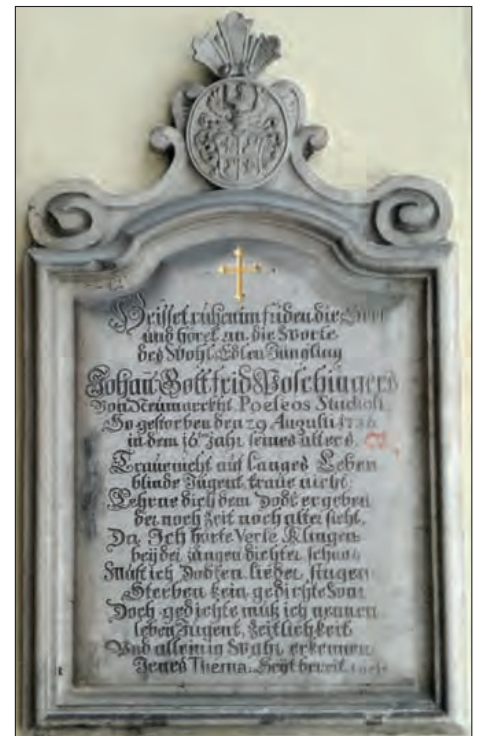 Heisset ruhen im friden die Seel
und höret an die Worte
des Wohl Edlen Jüngling
Johan Gottfrid Poschingers
Von Neumarckht Poeseos Studiosi
So gestorben den 29 Augusti 1736
in dem 16 Jahr seines alters
Traue nicht auf langes Leben
blinde Jugent traue nicht
Lehrne dich dem Todt ergeben
der noch Zeit noch alter sicht
Da Ich harte Verse Klingen
bey der jungen dichter
Must ich Todten lieder singen
Sterben kein gedichte
Doch gedichte mus ich nennen
leben Jugent Zeitlichkeit
Und allein erkennen
Jenes Thema